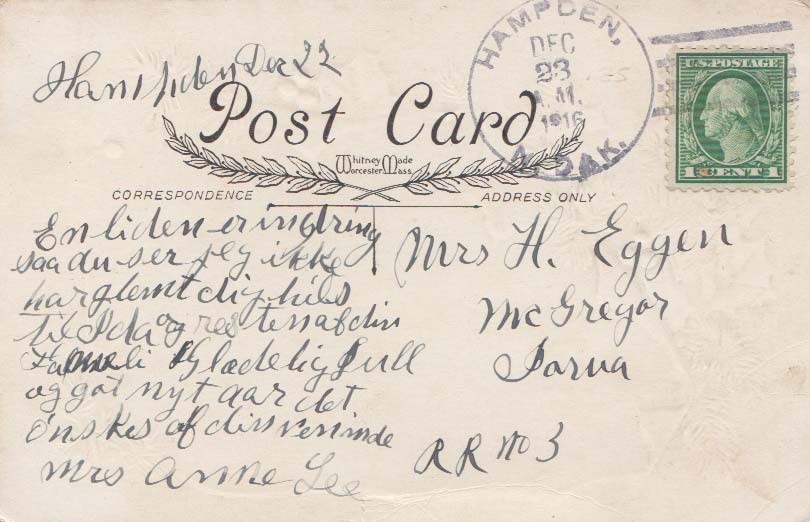 HAMPDEN,
DEC
23
A.M.
1916
N. DAK.
U.S. POSTAGE
1 CENT 1
Hampden Dec 22
Post Card
Whitney Made
Worcester, Mass.
CORRESPONDENCE
ADDRESS ONLY
En liden erindring
saa du ser jeg ikke
har glemt dig hils
til Ida og resten af din
Fameli Glædelig Jull
og got nyt aar det
önskes af din veninde
Mrs Anne Lee
Mrs H. Eggen
McGregor
Iorva
RR No 3